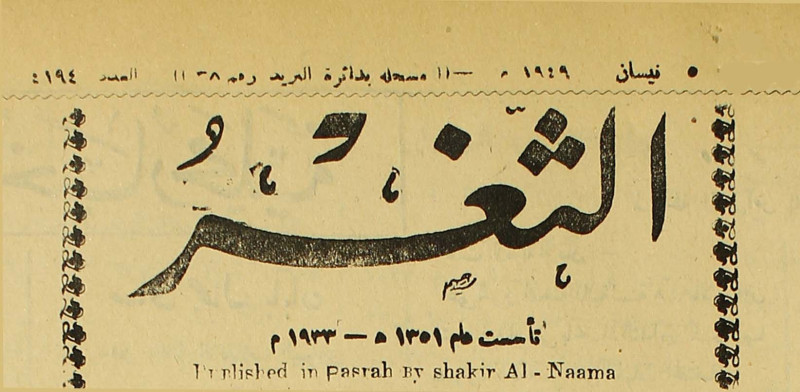 ٥ نيسان ١٩٤٩ م —١١ مسجله بدائرة البريد رقم ٣٨ ١١ العدد ٤١٩٤
الثغر
تأسست عام ١٣٥١ ه — ١٩٣٣ م
Published in Pasrah By shakir Al - Naama